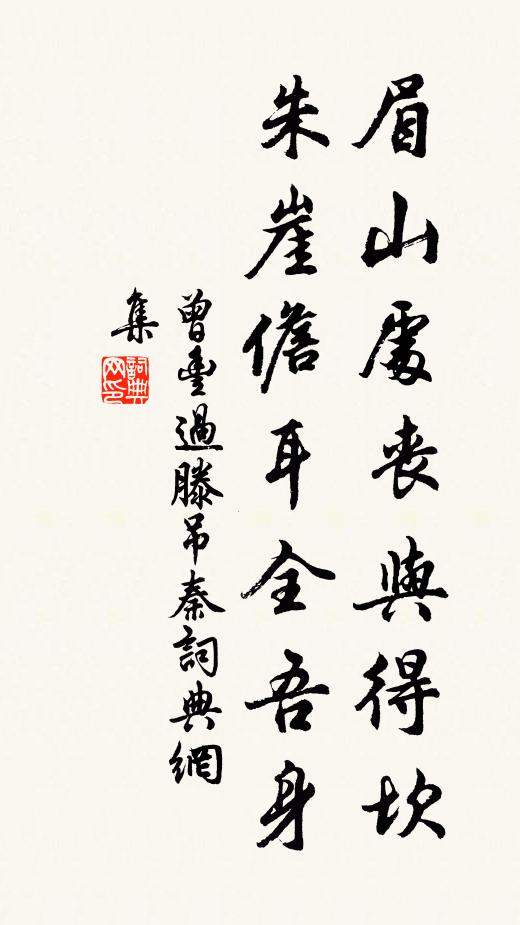 眉山處喪與得坎
朱崖儋耳全吾身
曾豐過滕吊秦詞典網
集
詞典
网印